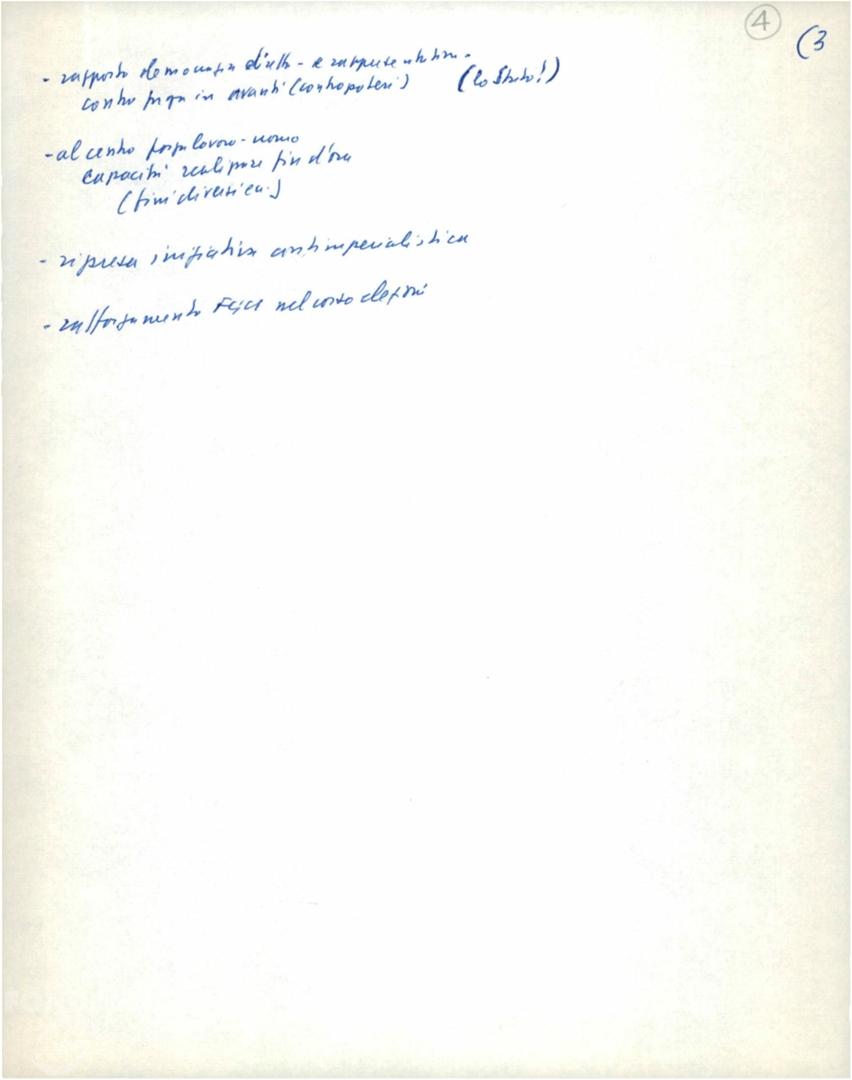 4
(3
- rapporto democrazia diretta - e rappresentativa -
contro fuga in avanti (contropoteri) (lo Stato!)
- al centro forza lavoro - uomo
capacità realizzare fin d'ora
(fini diversi ca.)
- ripresa iniziativa antimperialistica
- rafforzamento FGCI nel corso elezioni